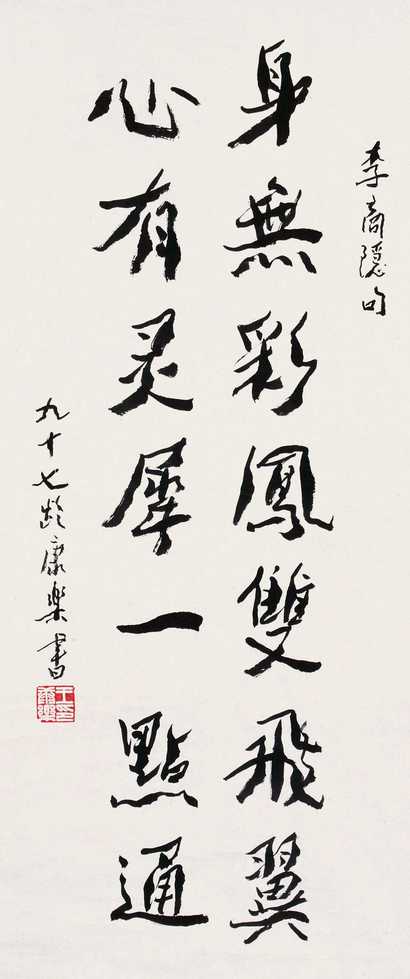 李商隱句
身無彩鳳雙飛翼
心有灵犀一點通
九十七齡康樂書
王印
康樂